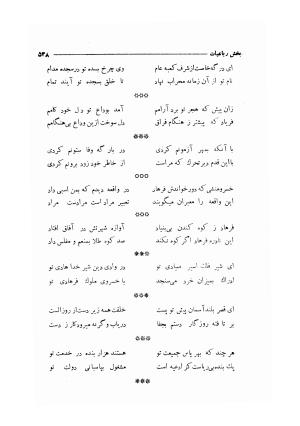 بخش رباعیات ۵۳۸
ای در گه خاصت از شرف کعبه عام وی چرخ بسده تو در سجده مدام
نام تو از آن زمانه محراب نهاد تا خلق بسجده تو آیند تمام
***
زان پیش که هجر تو برد آرامم آمد بوداع تو دل خود کامم
فریاد که پیشتر ز هنگام فراق دل سوخت ازین وداع بی‌هنگامم
***
با آنکه بصبر آزمونم کردی در بار گه وفا ستونم کردی
بااین قدم و بر تحرک که مراست از خاطر خود زود برونم کردی
○○○
خسرومنشی که دورخواندش فرهاد در واقعه دیدم که بمن اسبی داد
این واقعه را معبران میگویند تعبیر اسب است مرادست مراد
***
فرهاد ز کوه کندن بی‌بنیاد آوازه شیرینش در آفاق افتاد
این نادره فرهاد اگر کوه نکند صد کوه طلا بمنعم و مفلس داد
***
ای شیر فلک اسیر صیادی تو در وادی دین شیر خدا هادی تو
ادراک بمیزان خرد میسنجد با خسروی ملوک فرهادی تو
***
ای قصر بلند آسمان پیش تو پست خلقت همه زیر دست از روز الست
بر تافته روزگار دستم بجفا دریاب و گرنه میرود کار ز دست
***
هر چند که بهر پاس جمعیت تو هستند هزار بنده در خدمت تو
یک بنده بی‌ریاست کز ادعیه است مشغول بپاسبانی دولت تو
***